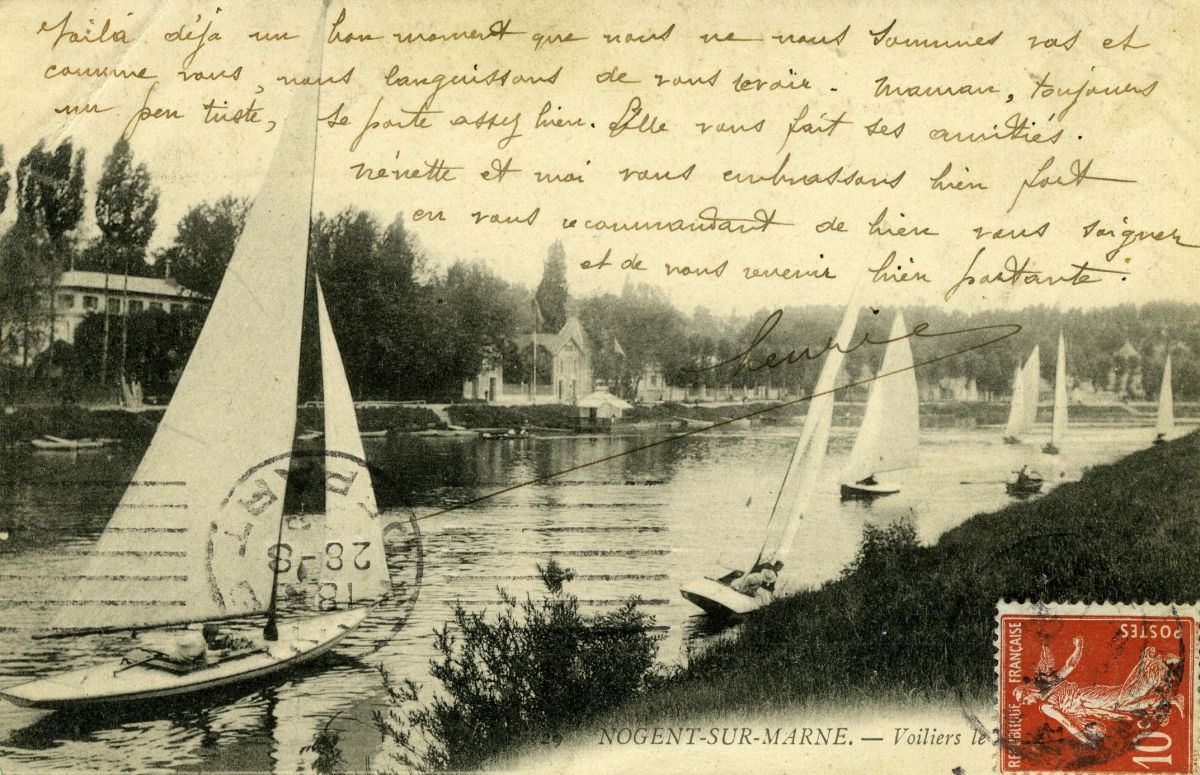 Voilà déjà un bon moment que nous ne nous sommes vus et
comme vous, nous languissons de vous revoir. Maman, toujours
un peu triste, se porte assez bien. Elle vous fait ses amitiés.
Nénette et moi vous embrassons bien fort
en vous recommandant de bien vous soigner
et de nous revenir bien portante.
28-8
29 NOGENT-SUR-MARNE. — Voiliers le
RÉPUBLIQUE FRANÇAISE
POSTES
10